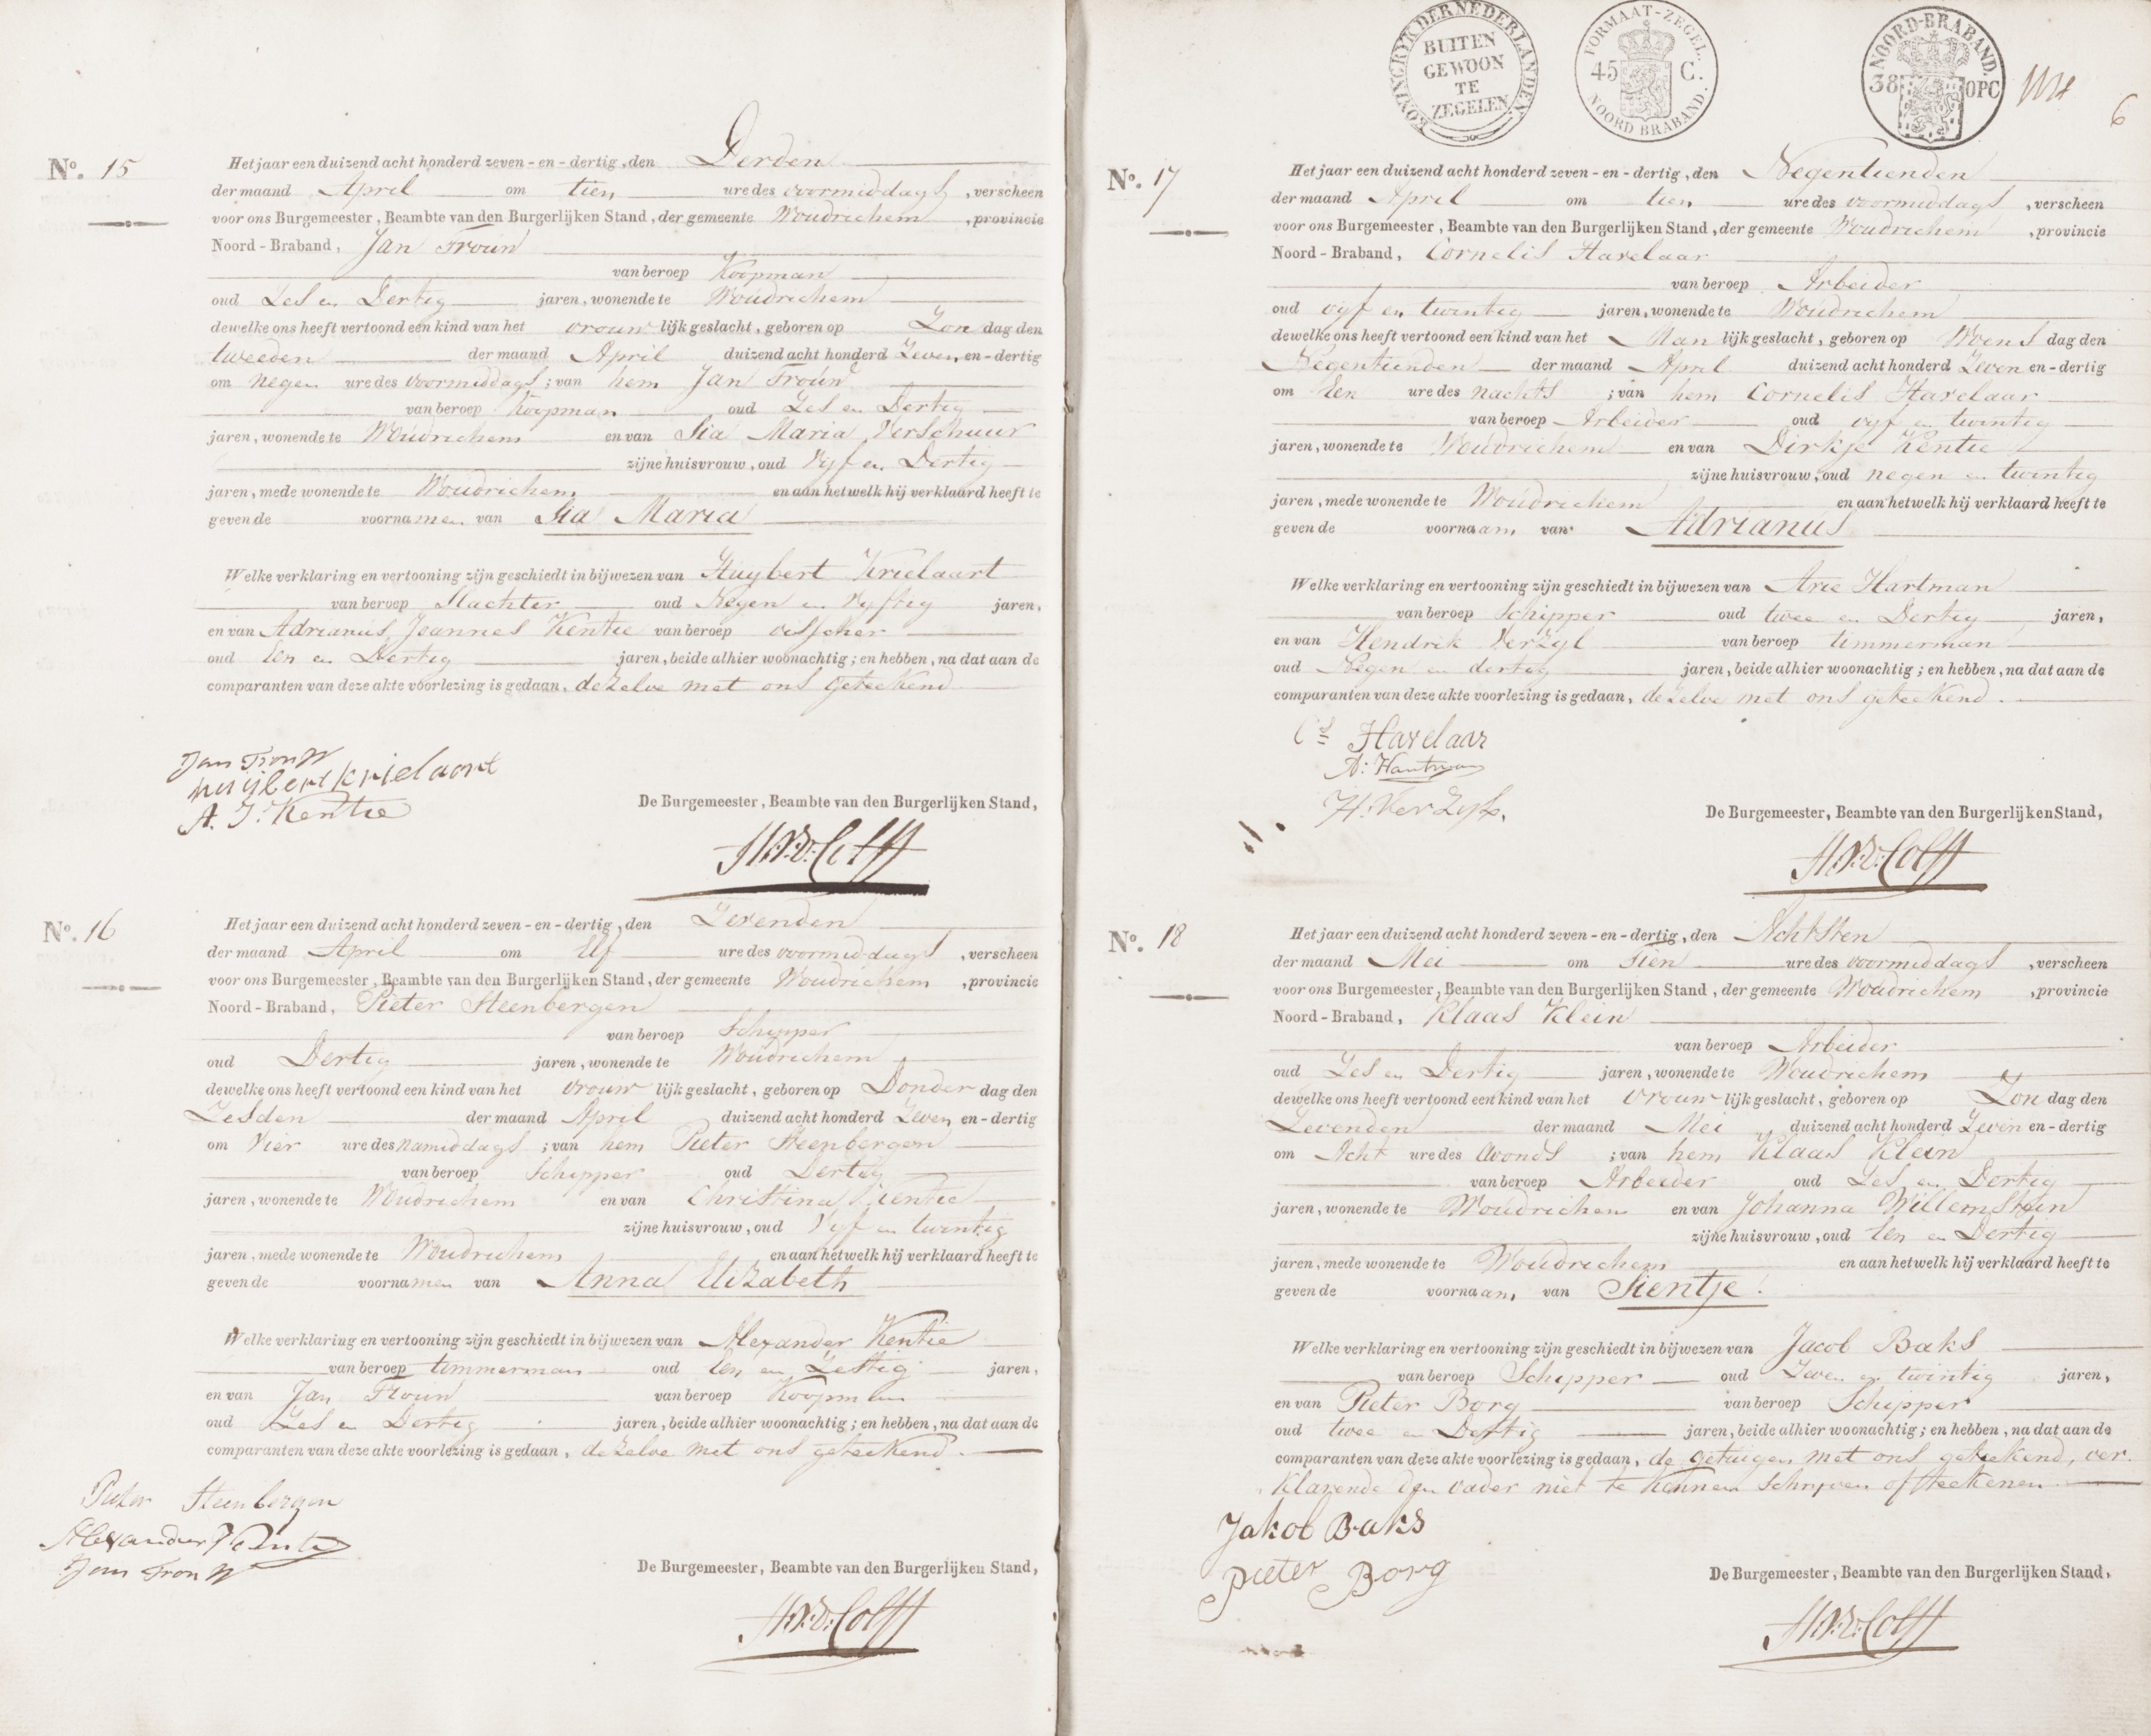 No. 15
Het jaar een duizend acht honderd zeven-en-dertig, den Derden
der maand April om tien ure des voormiddags, verscheen
voor ons Burgemeester, Beambte van den Burgerlijken Stand, der gemeente Woudrichem, provincie
Noord-Braband, Jan Troùw
van beroep Koopman
oud Zes en Dertig jaren, wonende te Woudrichem
dewelke ons heeft vertoond een kind van het vrouw lijk geslacht, geboren op Zon dag den
tweeden der maand April duizend acht honderd Zeven en-dertig
om negen ure des voormiddags; van hem Jan Troùw
van beroep Koopman oud Zes en Dertig
jaren, wonende te Woudrichem en van Sia Maria Verschuur
zijne huisvrouw, oud Vyf en Dertig
jaren, mede wonende te Woudrichem en aan hetwelk hij verklaard heeft te
geven de voornamen van Sia Maria
Welke verklaring en vertooning zijn geschiedt in bijwezen van Huybert Krielaart
van beroep Slachter oud Negen en Vyftig jaren,
en van Adrianus Joannes Kentie van beroep visscher
oud Een en Dertig jaren, beide alhier woonachtig; en hebben, na dat aan de
comparanten van deze akte voorlezing is gedaan, dezelve met ons geteekend
Jan Trouw
huijbert krielaart
A. J. Kentie
De Burgemeester, Beambte van den Burgerlijken Stand,
No. 16
Het jaar een duizend acht honderd zeven-en-dertig, den Zevenden
der maand April om Elf ure des voormiddags, verscheen
voor ons Burgemeester, Beambte van den Burgerlijken Stand, der gemeente Woudrichem, provincie
Noord-Braband, Pieter Steenbergen
van beroep Schipper
oud Dertig jaren, wonende te Woudrichem
dewelke ons heeft vertoond een kind van het vrouw lijk geslacht, geboren op Donder dag den
Zesden der maand April duizend acht honderd Zeven en-dertig
om Vier ure des namiddags; van hem Pieter Steenbergen
van beroep Schipper oud Dertig
jaren, wonende te Woudrichem en van Christina Kentie
zijne huisvrouw, oud Vyf en twintig
jaren, mede wonende te Woudrichem en aan hetwelk hij verklaard heeft te
geven de voornamen van Anna Elizabeth
Welke verklaring en vertooning zijn geschiedt in bijwezen van Alexander Kentie
van beroep timmerman oud Een en Zestig jaren,
en van Jan Troùw van beroep Koopman
oud Zes en Dertig jaren, beide alhier woonachtig; en hebben, na dat aan de
comparanten van deze akte voorlezing is gedaan, dezelve met ons geteekend.
Pieter Steenbergen
Alexander Kentie
Jan Trouw
De Burgemeester, Beambte van den Burgerlijken Stand,
KONINGRYK DER NEDERLANDEN
BUITEN
GEWOON
TE
ZEGELEN
FORMAAT-ZEGEL.
45 C.
NOORD BRABAND.
NOORD-BRABAND.
38 OPC
6
No. 17
Het jaar een duizend acht honderd zeven-en-dertig, den Negentienden
der maand April om tien ure des voormiddags, verscheen
voor ons Burgemeester, Beambte van den Burgerlijken Stand, der gemeente Woudrichem, provincie
Noord-Braband, Cornelis Havelaar
van beroep Arbeider
oud vyf en twintig jaren, wonende te Woudrichem
dewelke ons heeft vertoond een kind van het Man lijk geslacht, geboren op Woens dag den
Negentienden der maand April duizend acht honderd Zeven en-dertig
om Een ure des nachts; van hem Cornelis Havelaar
van beroep Arbeider oud vyf en twintig
jaren, wonende te Woudrichem en van Dirkje Kentie
zijne huisvrouw, oud negen en twintig
jaren, mede wonende te Woudrichem en aan hetwelk hij verklaard heeft te
geven de voornaam van Adrianus
Welke verklaring en vertooning zijn geschiedt in bijwezen van Arie Hartman
van beroep Schipper oud twee en Dertig jaren,
en van Hendrik Verzyl van beroep timmerman
oud Negen en dertig jaren, beide alhier woonachtig; en hebben, na dat aan de
comparanten van deze akte voorlezing is gedaan, dezelve met ons geteekend.
Cs Havelaar
A: Hartman
H. Ver Zyl.
De Burgemeester, Beambte van den Burgerlijken Stand,
No. 18
Het jaar een duizend acht honderd zeven-en-dertig, den Achtsten
der maand Mei om Tien ure des voormiddags, verscheen
voor ons Burgemeester, Beambte van den Burgerlijken Stand, der gemeente Woudrichem, provincie
Noord-Braband, Klaas Klein
van beroep Arbeider
oud Zes en Dertig jaren, wonende te Woudrichem
dewelke ons heeft vertoond een kind van het Vrouw lijk geslacht, geboren op Zon dag den
Zevenden der maand Mei duizend acht honderd Zeven en-dertig
om Acht ure des Avonds; van hem Klaas Klein
van beroep Arbeider oud Zes en Dertig
jaren, wonende te Woudrichem en van Johanna Willemstein
zijne huisvrouw, oud Een en Dertig
jaren, mede wonende te Woudrichem en aan hetwelk hij verklaard heeft te
geven de voornaam van Sientje.
Welke verklaring en vertooning zijn geschiedt in bijwezen van Jacob Baks
van beroep Schipper oud Zeven en twintig jaren,
en van Pieter Borg van beroep Schipper
oud twee en Dertig jaren, beide alhier woonachtig; en hebben, na dat aan de
comparanten van deze akte voorlezing is gedaan, de getuigen met ons geteekend, ver-
klarende den vader niet te kunnen schryven of teekenen.
Jakob Baks
pieter Borg
De Burgemeester, Beambte van den Burgerlijken Stand,